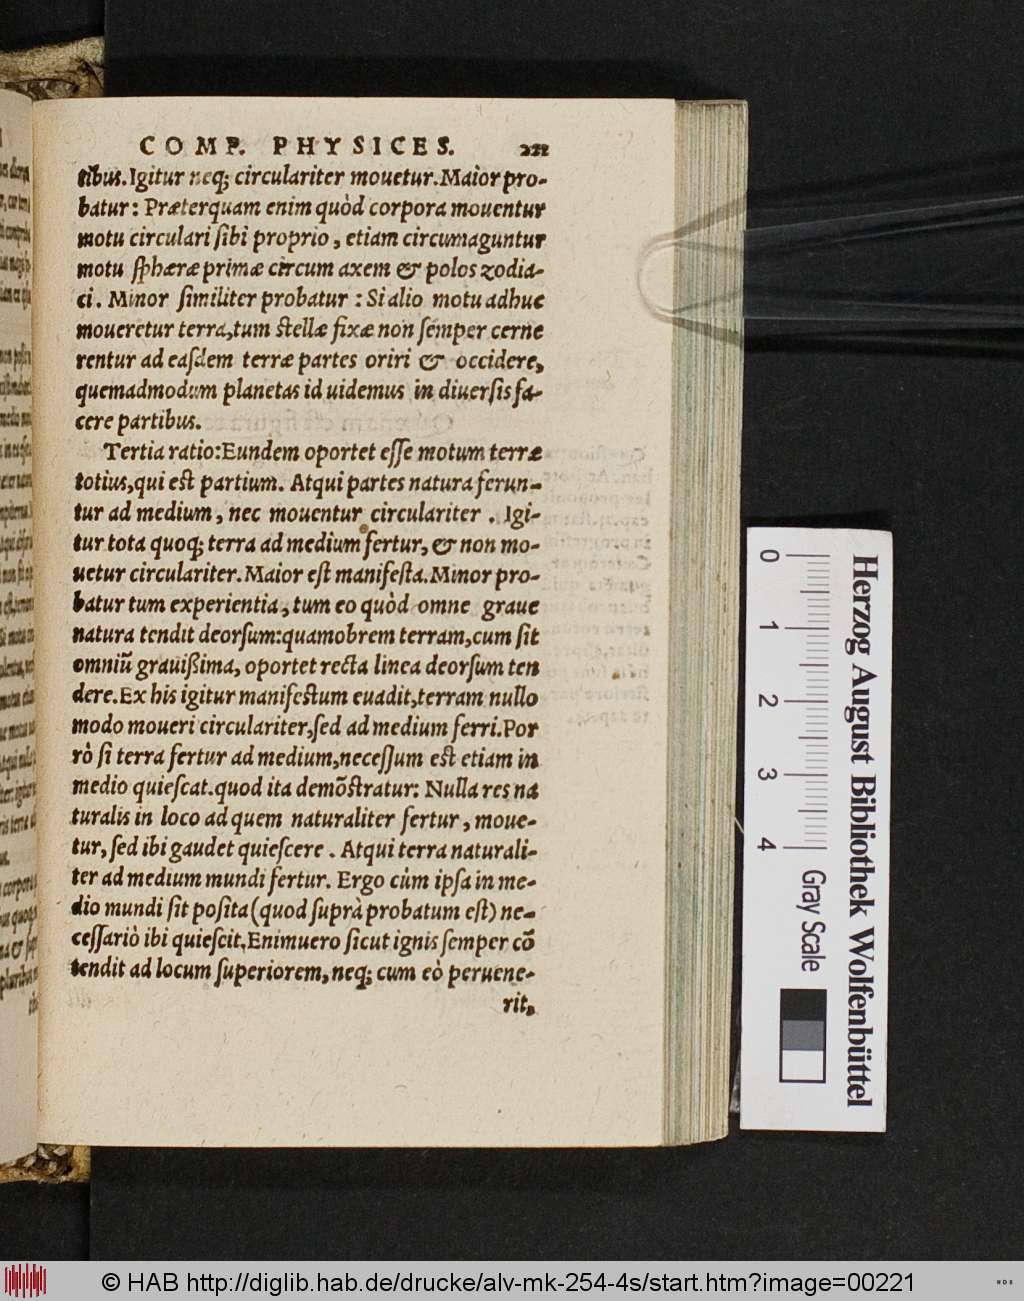 COMP. PHYSICES. 221
tibus. Igitur neq; circulariter mouetur. Maior pro-
batur: Præterquam enim quòd corpora mouentur
motu circulari sibi proprio, etiam circumaguntur
motu sphæræ primæ circum axem & polos zodia-
ci. Minor similiter probatur: Si alio motu adhuc
moueretur terra, tum stellæ fixæ non semper cerne
rentur ad easdem terræ partes oriri & occidere,
quemadmodum planetas id uidemus in diuersis fa-
cere partibus.
Tertia ratio: Eundem oportet esse motum terræ
totius, qui est partium. Atqui partes natura ferun-
tur ad medium, nec mouentur circulariter. Igi-
tur tota quoq; terra ad medium fertur, & non mo-
uetur circulariter. Maior est manifesta. Minor pro-
batur tum experientia, tum eo quòd omne graue
natura tendit deorsum: quamobrem terram, cum sit
omniũ grauißima, oportet recta linea deorsum ten
dere. Ex his igitur manifestum euadit, terram nullo
modo moueri circulariter, sed ad medium ferri. Por
rò si terra fertur ad medium, necessum est etiam in
medio quiescat. quod ita demõstratur: Nulla res na
turalis in loco ad quem naturaliter fertur, moue-
tur, sed ibi gaudet quiescere. Atqui terra naturali-
ter ad medium mundi fertur. Ergo cùm ipsa in me-
dio mundi sit posita (quod suprà probatum est) ne-
cessariò ibi quiescit. Enimuero sicut ignis semper cõ
tendit ad locum superiorem, neq; cum eò peruene-
rit,
0 1 2 3 4 Gray Scale
Herzog August Bibliothek Wolfenbüttel
© HAB http://diglib.hab.de/drucke/alv-mk-254-4s/start.htm?image=00221